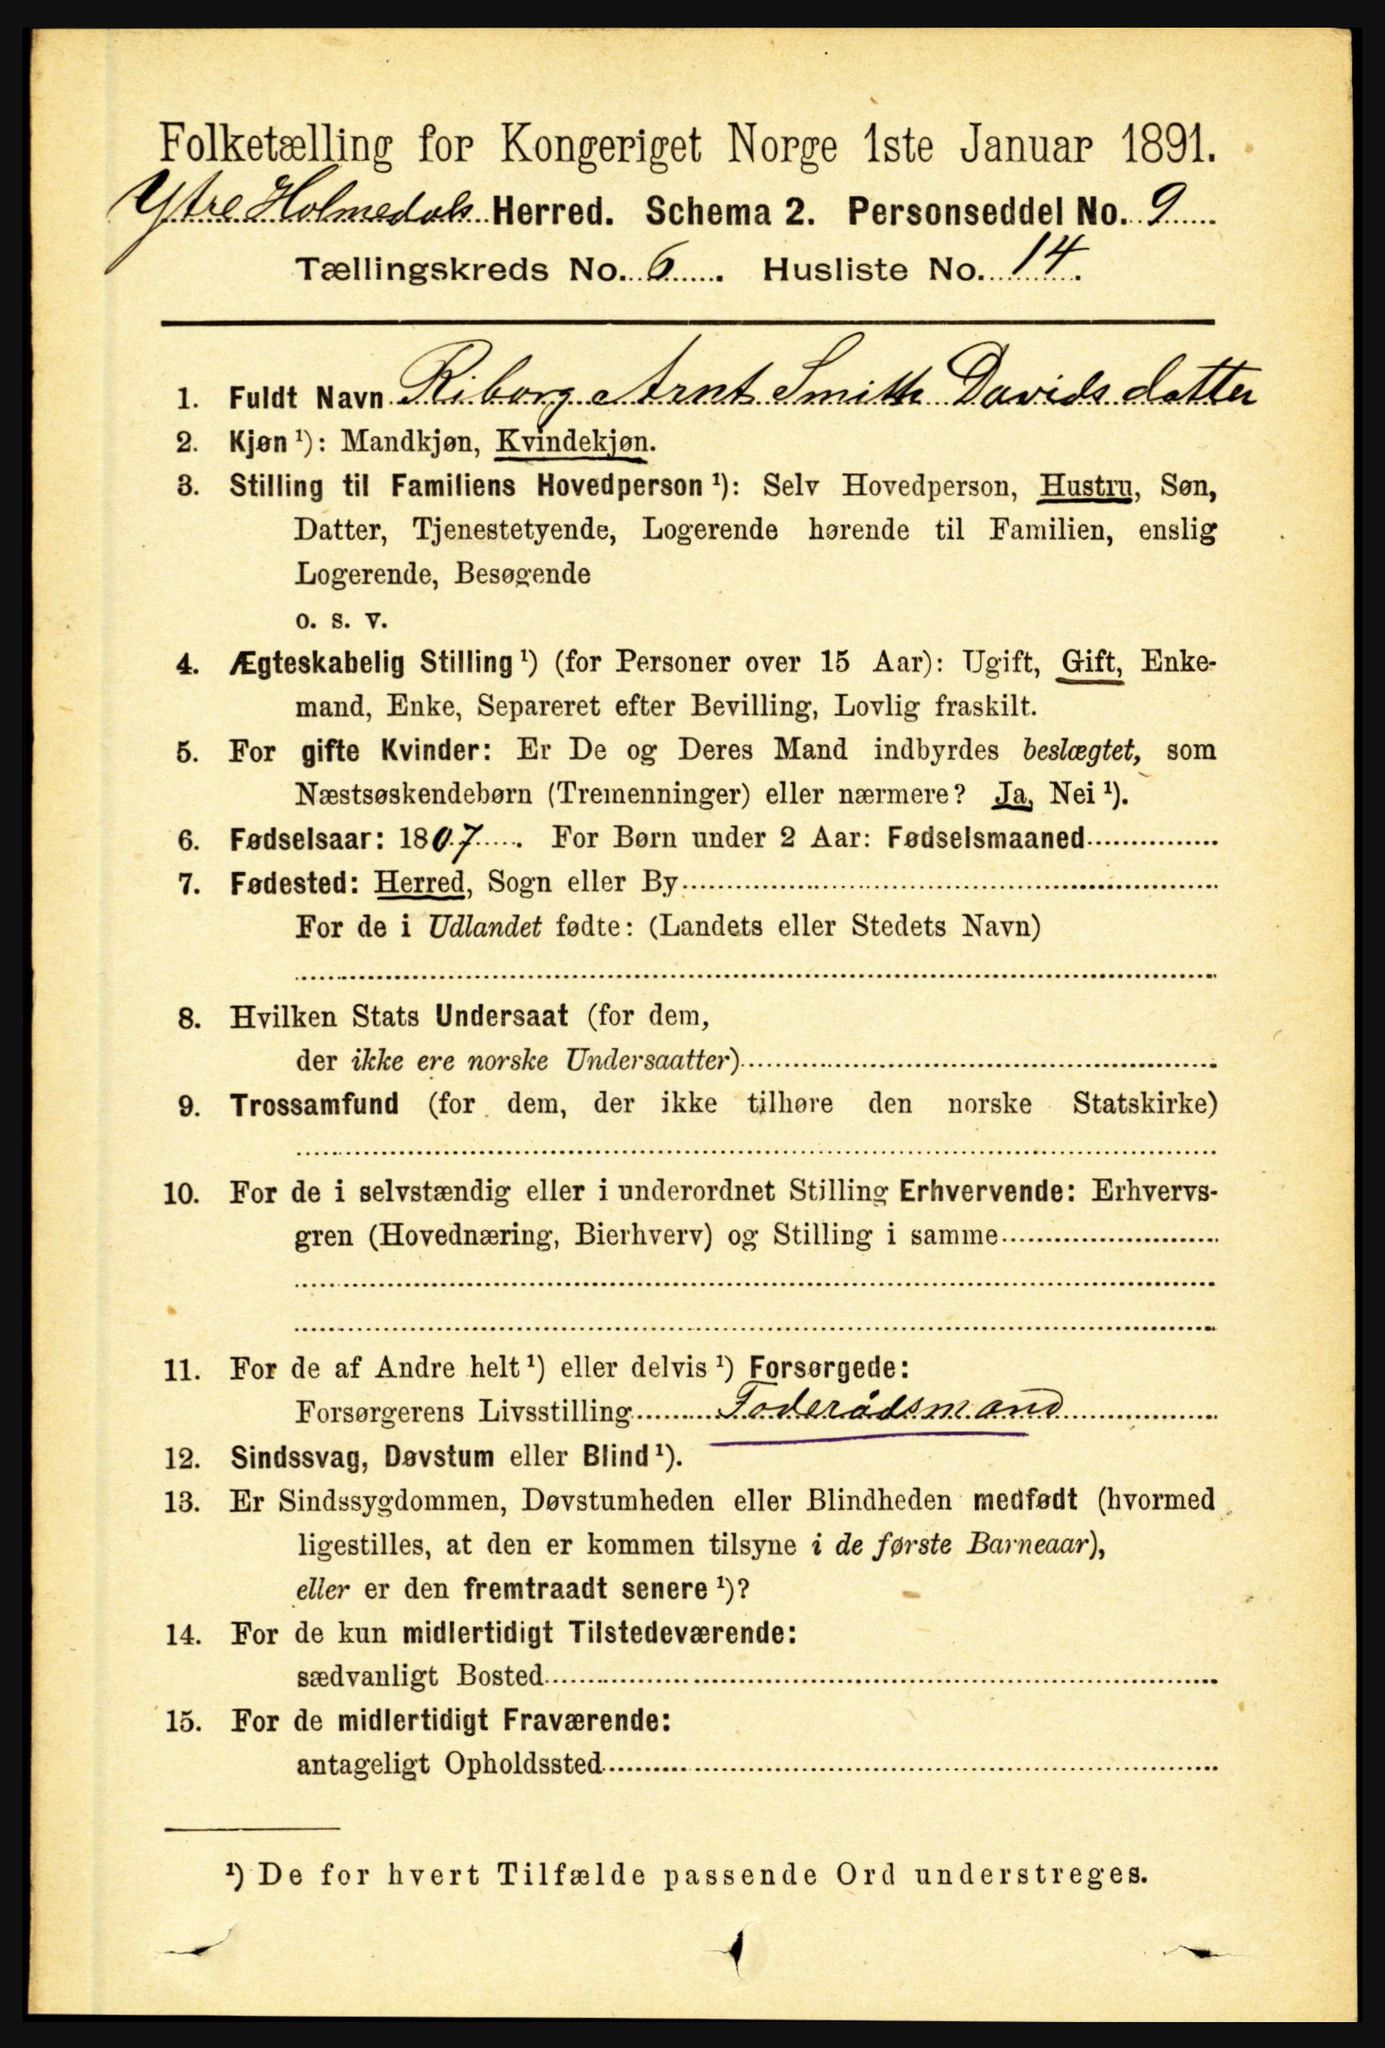 Folketælling for Kongeriget Norge 1ste Januar 1891.
Ytre Holmedals Herred. Schema 2. Personseddel No. 9
Tællingskreds No. 6. Husliste No. 14.
1. Fuldt Navn Riborg Arnt Smith Davidsdatter
2. Kjøn ¹): Mandkjøn, Kvindekjøn.
3. Stilling til Familiens Hovedperson ¹): Selv Hovedperson, Hustru, Søn,
Datter, Tjenestetyende, Logerende hørende til Familien, enslig
Logerende, Besøgende
o. s. v.
4. Ægteskabelig Stilling ¹) (for Personer over 15 Aar): Ugift, Gift, Enke-
mand, Enke, Separeret efter Bevilling, Lovlig fraskilt.
5. For gifte Kvinder: Er De og Deres Mand indbyrdes beslægtet, som
Næstsøskendebørn (Tremenninger) eller nærmere? Ja, Nei ¹).
6. Fødselsaar: 1807. For Børn under 2 Aar: Fødselsmaaned
7. Fødested: Herred, Sogn eller By
For de i Udlandet fødte: (Landets eller Stedets Navn)
8. Hvilken Stats Undersaat (for dem,
der ikke ere norske Undersaatter)
9. Trossamfund (for dem, der ikke tilhøre den norske Statskirke)
10. For de i selvstændig eller i underordnet Stilling Erhvervende: Erhvervs-
gren (Hovednæring, Bierhverv) og Stilling i samme
11. For de af Andre helt ¹) eller delvis ¹) Forsørgede:
Forsørgerens Livsstilling Foderådsmand
12. Sindssvag, Døvstum eller Blind ¹).
13. Er Sindssygdommen, Døvstumheden eller Blindheden medfødt (hvormed
ligestilles, at den er kommen tilsyne i de første Barneaar),
eller er den fremtraadt senere ¹)?
14. For de kun midlertidigt Tilstedeværende:
sædvanligt Bosted
15. For de midlertidigt Fraværende:
antageligt Opholdssted
¹) De for hvert Tilfælde passende Ord understreges.